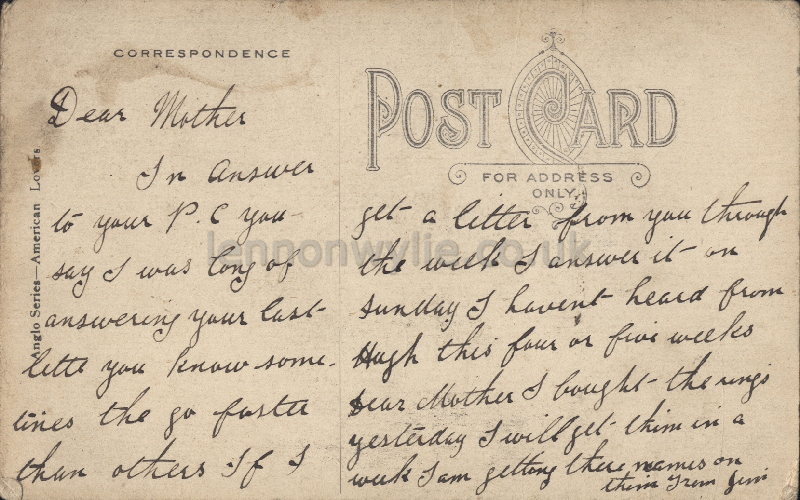 CORRESPONDENCE
Dear Mother
In answer
to your P.C you
say I was long of
answering your last
lette you know some-
times the go faster
than others If I
Anglo Series—American Lovers
POST CARD
FOR ADDRESS
ONLY.
get a litter from you through
the week I answer it on
Sunday I havent heard from
Hugh this four or five weeks
Dear Mother I bought the rings
yesterday I will get them in a
week I am getting there names on
them From Jim
lennonwylie.co.uk